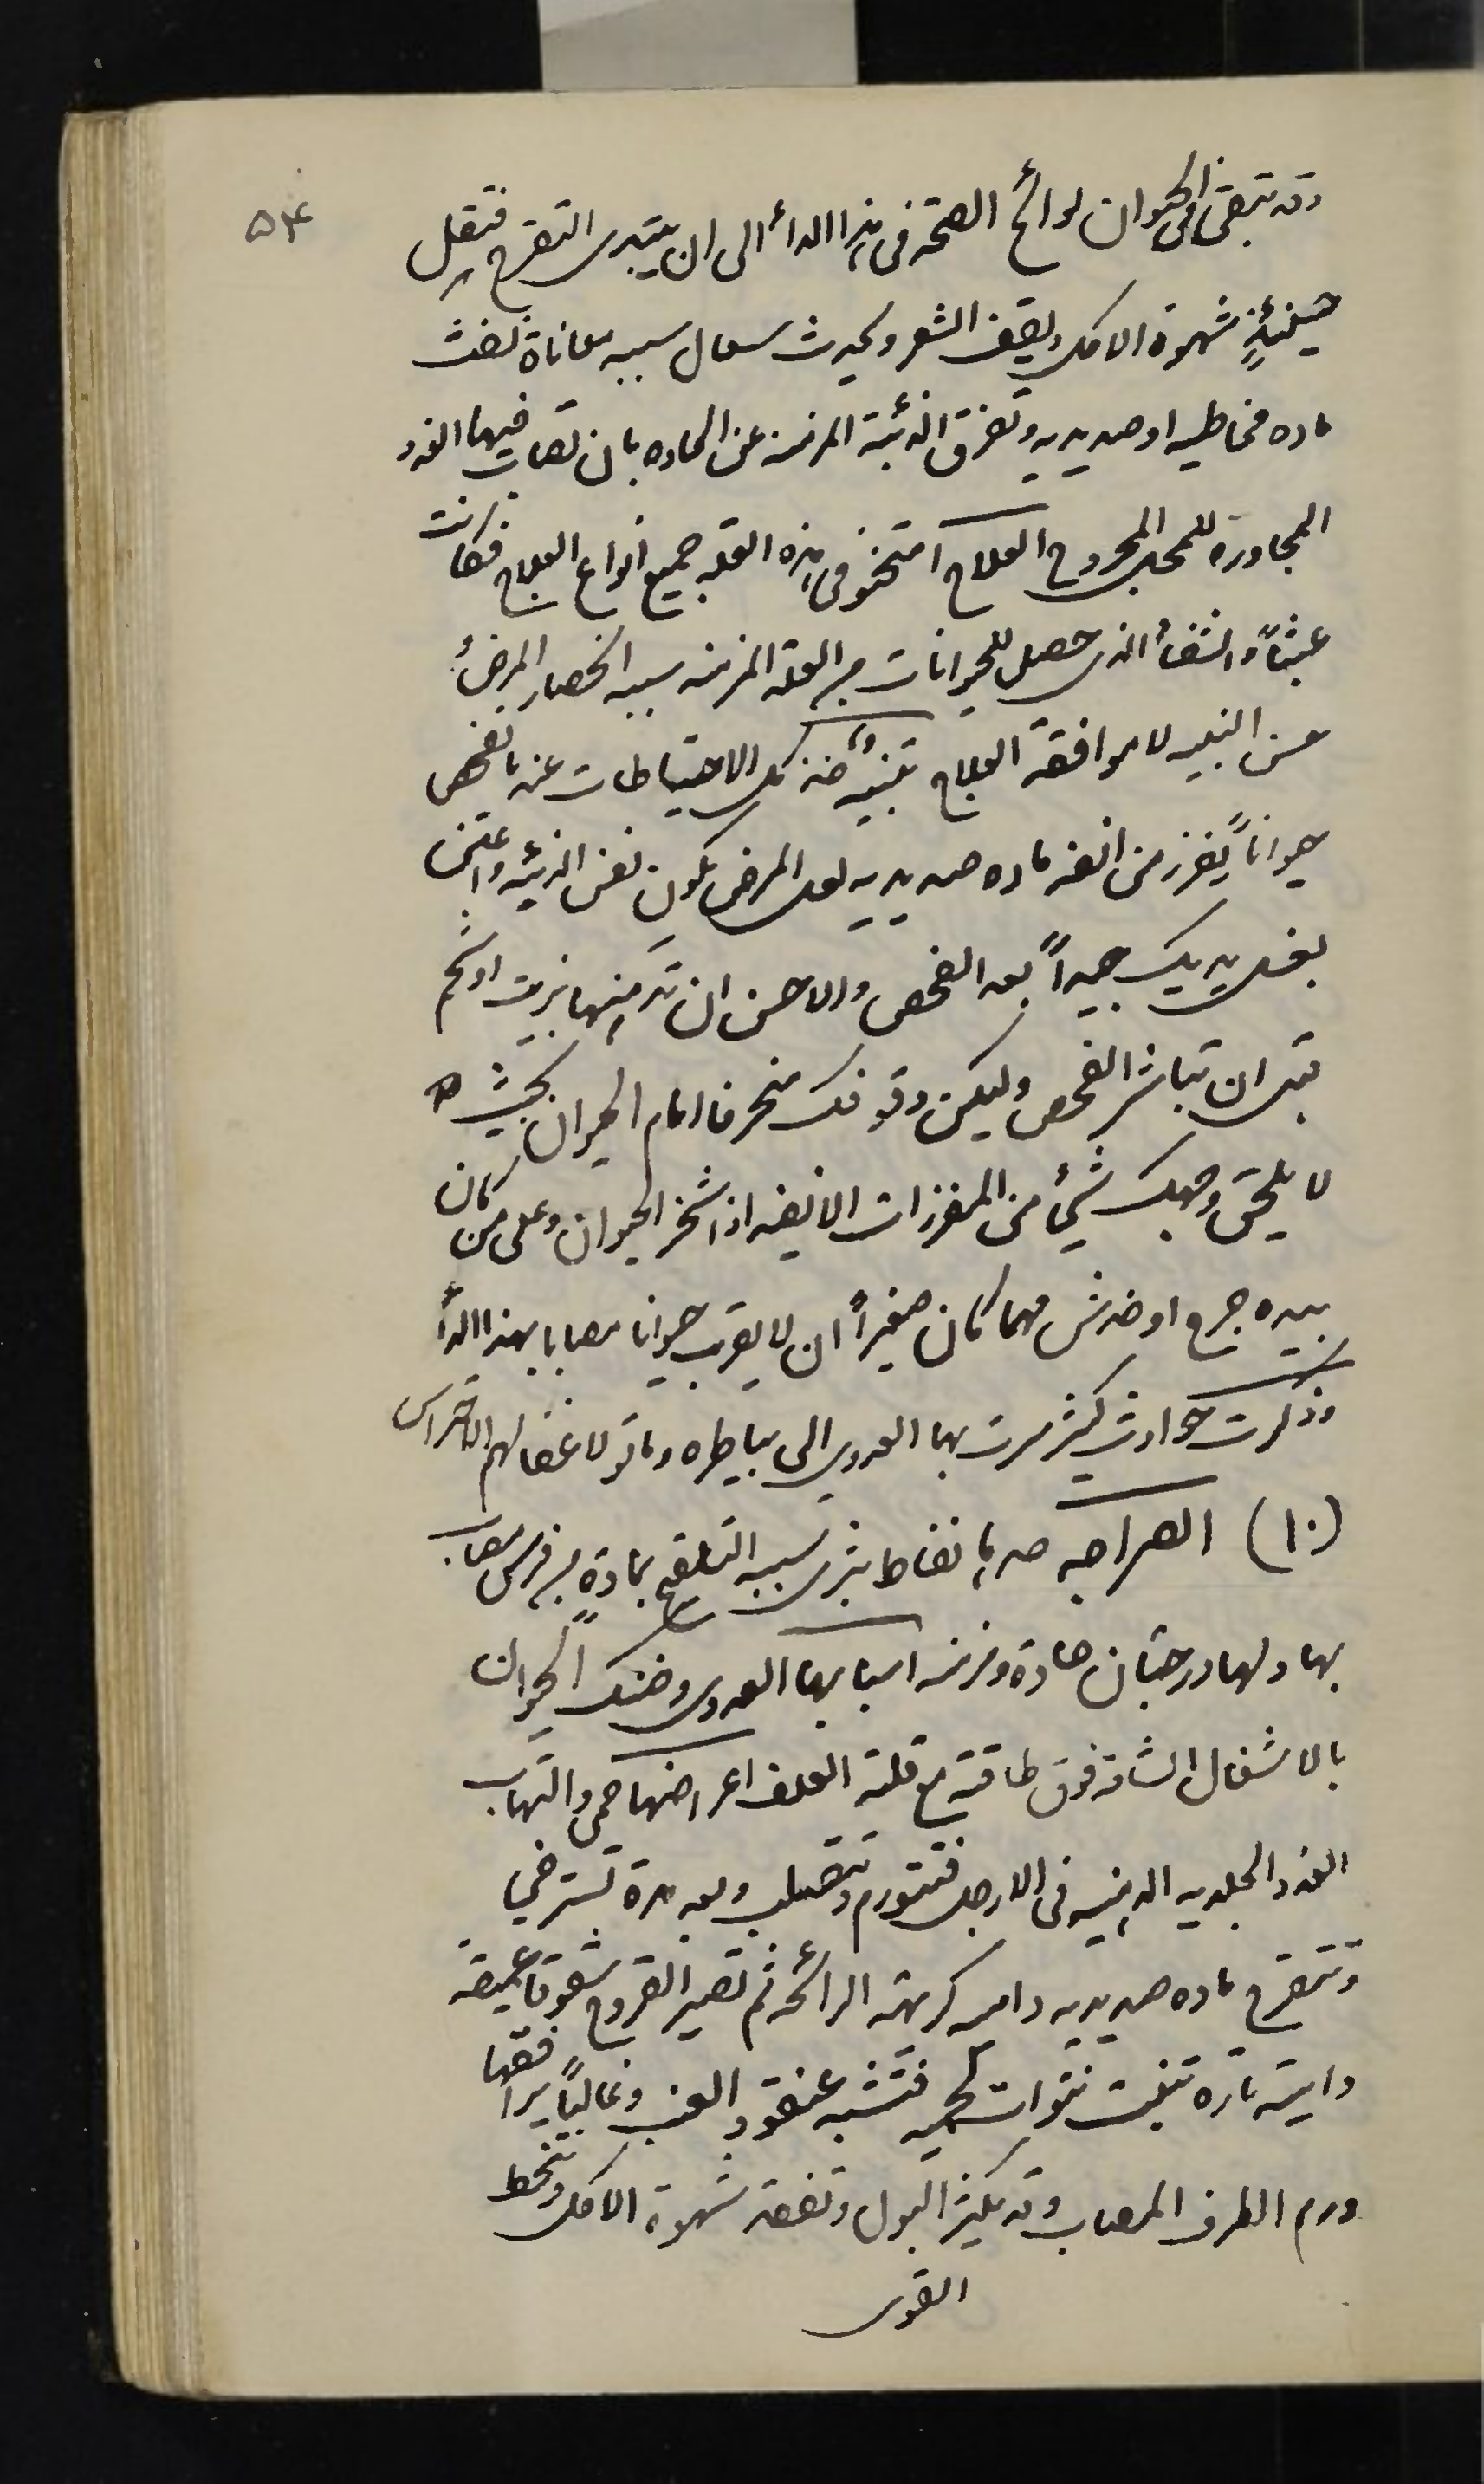 ٥٤
وقد تبقى فى الحيوان لوائح الصحة فى هذا الدأ الى ان يبتدى التقرح فتقل
حينئذٍ شهوة الاكل ويقف الشعر ويحدث سعال سببه معاناة نفث
ماده مخاطيه او صديديه وتفرق الذئبة المزمنه عن الحاده بان تصاب فيها الغدد
المجاورة للمحل المجروح العلاج امتحنو فى هذه العله جميع انواع العلاج فكانت
عبثاً والشفأ الذى حصل للحيوانات من العلة المزمنه سببه انحصار المرض
عن البنيه لا موافقة العلاج تنبيه وأخذ كل الاحتياطات عند ما تفحص
حيواناً يفرز من انفه ماده صديديه لعل المرض يكون نفس الذئبه واعتن
بغسل يديك جيداً بعد الفحص والاحسن ان تدهنها بزيت او شحم
قبل ان تباشر الفحص وليكن وقوفك منحرفا امام الحيوان بحيث
لا يلحق وجهك شيُ من المفرزات الانفيه اذا شخر الحيوان وعلى من كان
بيده جرح او خدش مهما كان صغيراً ان لا يقرب حيوانا مصابا بهذا الدأ
وذكرت حوادث كثر سرت بها العدوى الى بياطره وماتو لاغفالهم الاحتراس
(١٠) السراجه هى نفاط بثرى سببه التلقيح بمادةٍ من فرس مصاب
بها ولها درجتان حادة ومزمنه اسبابها العدوى وضنك الحيوان
بالاشغال الشاقه فوق طاقته مع قلة العلف اعراضها حمى والتهاب
الغدد الجلديه الدهنيه فى الارجل فتتورم وتتصلب وبعد مدة تسترخي
وتتقرح ماده صديديه داميه كريهة الرائحه ثم تصير القروح شقوقا عميقه
داميه تارة تنبت نتوات لحميه فتشبه عنقود العنب وغالباً يرافقها
ورم الطرف المصاب وقد يكثر البول وتفقد شهوة الاكل وتنحط
القوى